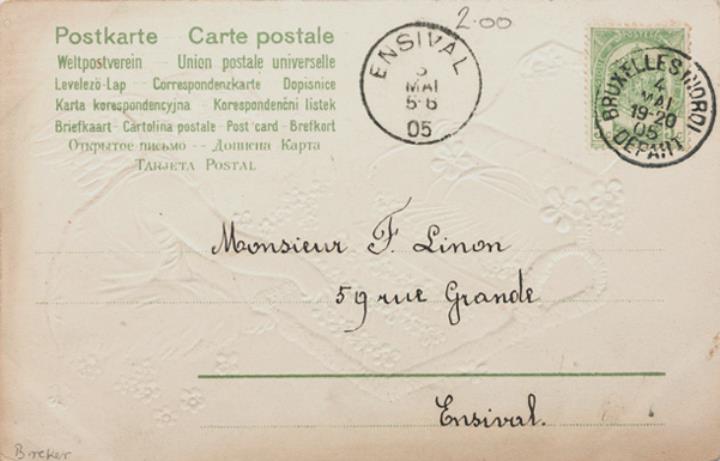 2.00
Postkarte Carte postale
Weltpostverein Union postale universelle
Levelezö-Lap Correspondenzkarte Dopisnice
Karta korespondencyjna Korespondenční listek
Briefkaart - Cartolina postale - Post card - Brefkort
Открытое письмо -- Дописна Карта
TARJETA POSTAL
ENSIVAL
5
MAI
5-6
05
BRUXELLES (NORD)
4
MAI
19-20
05
DEPART
Monsieur F. Linon
59 rue Grande
Ensival.
Breker